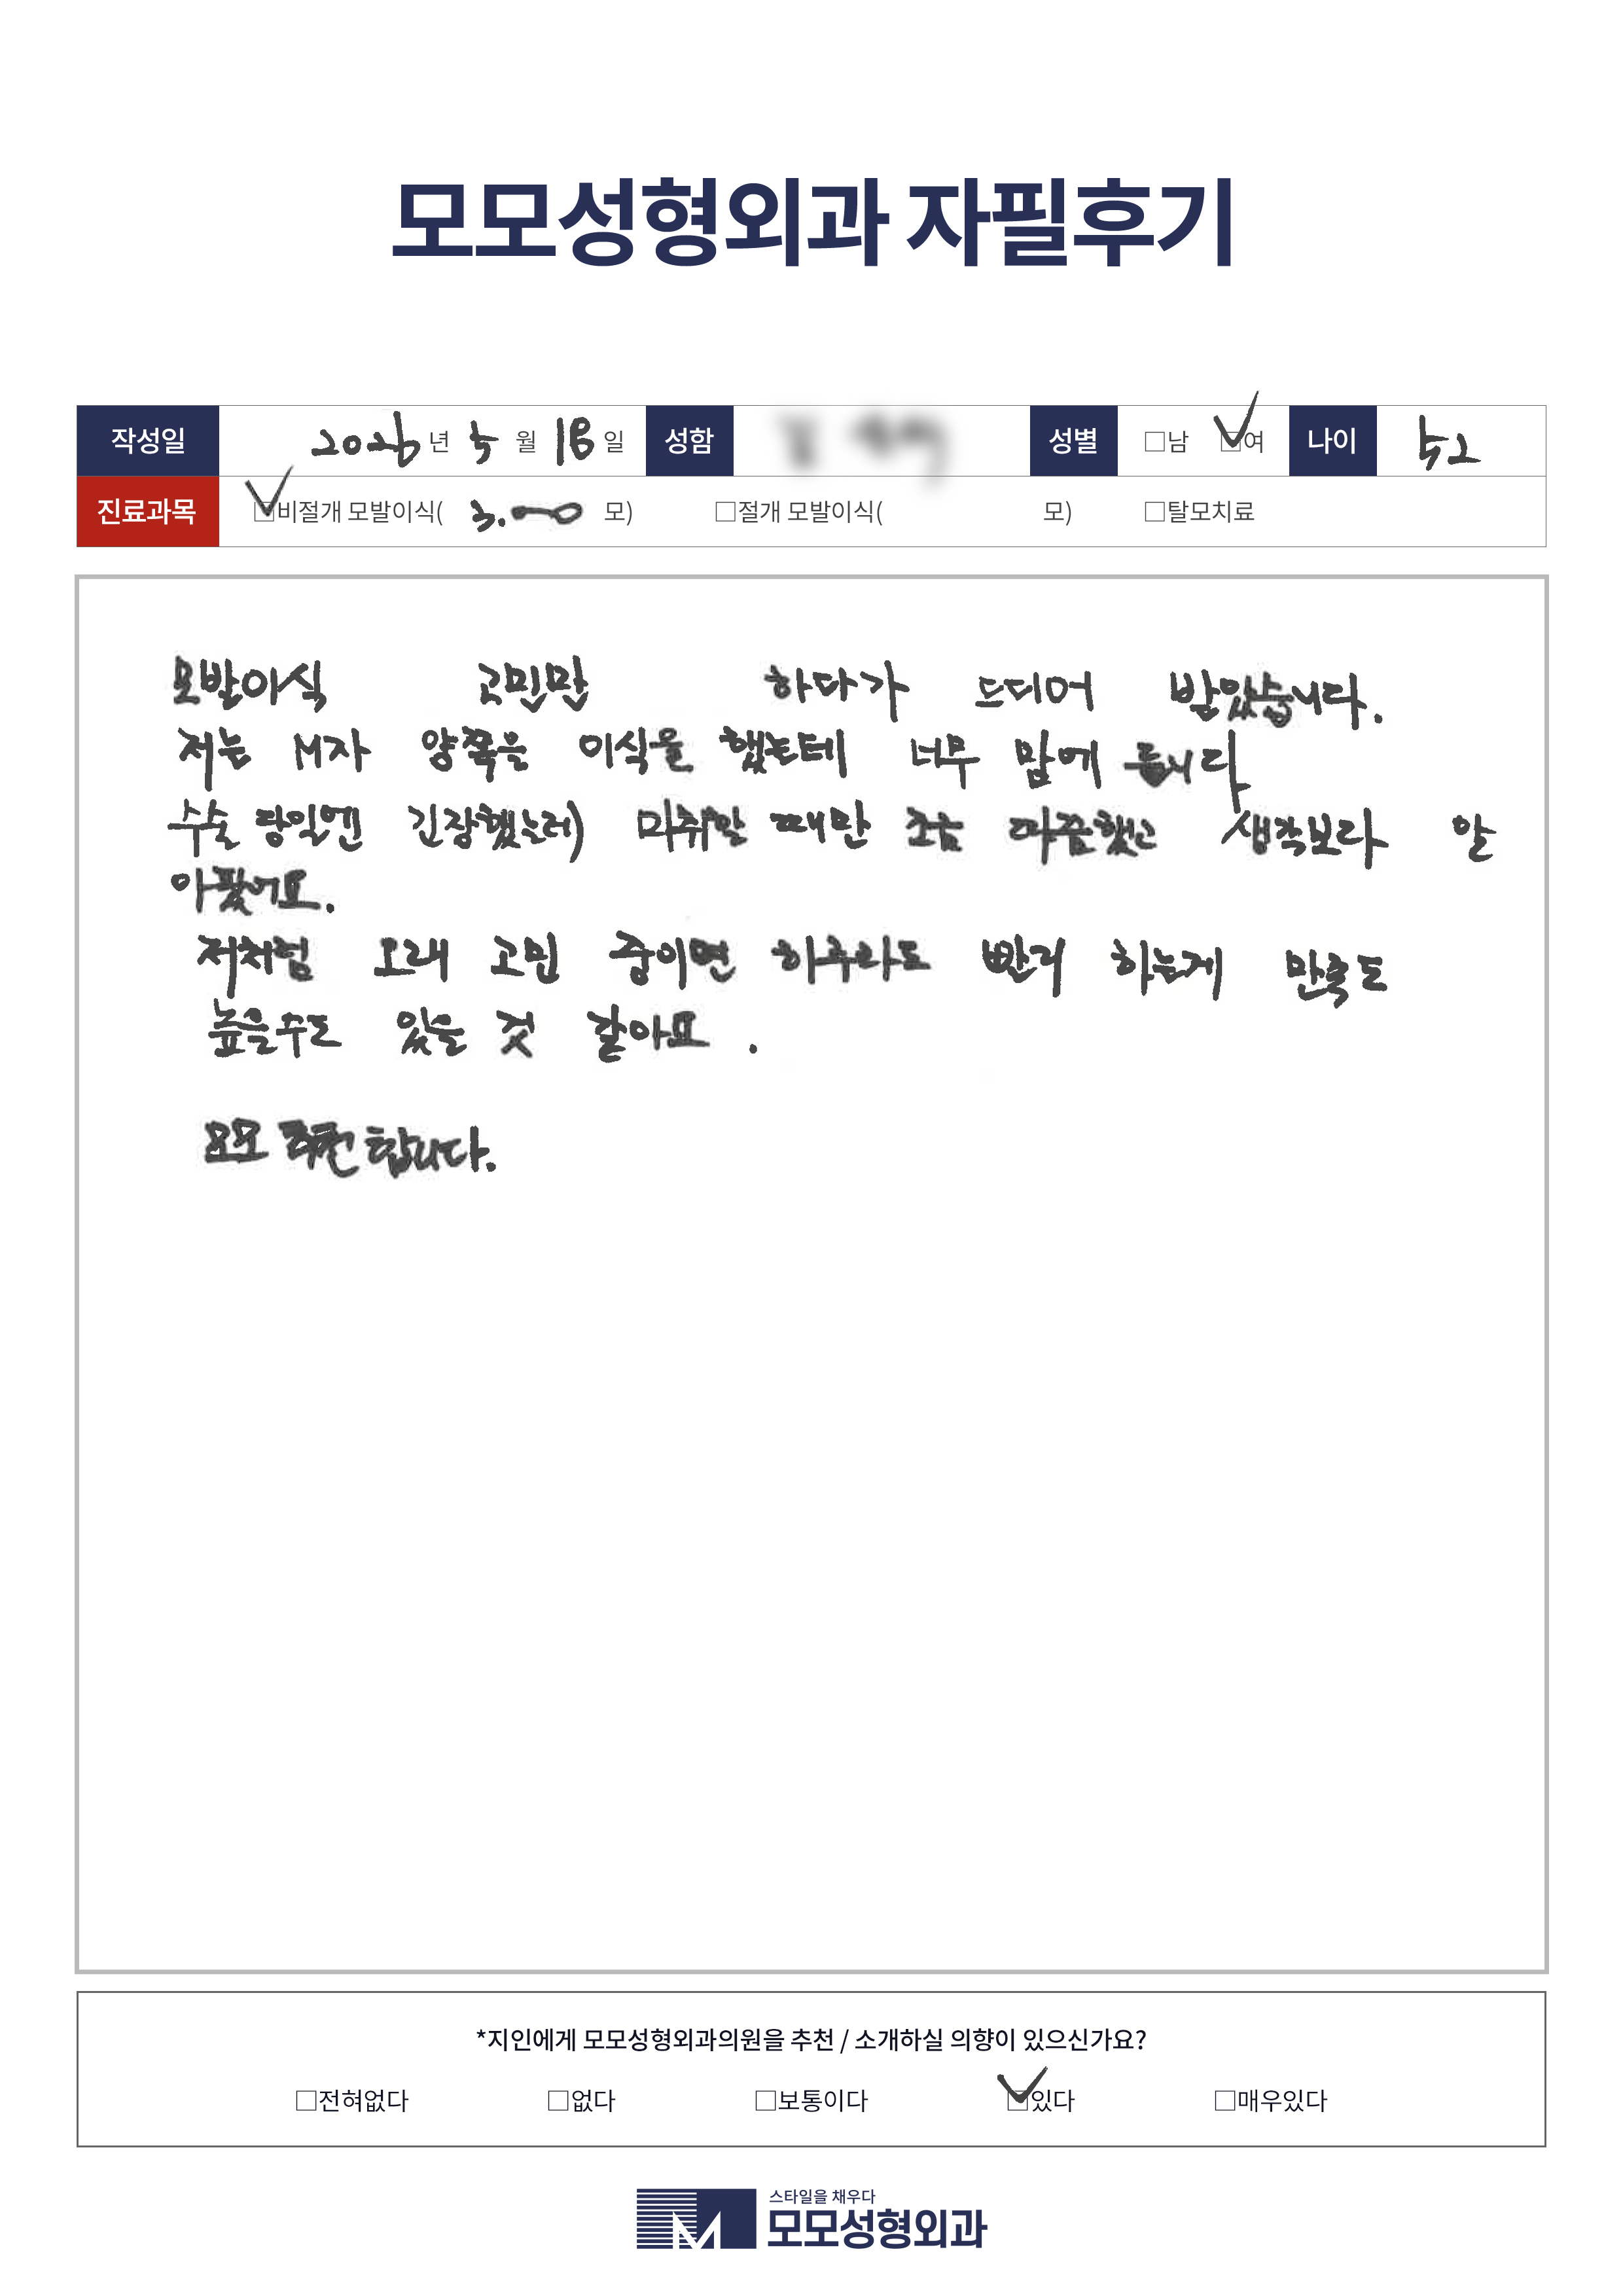 모모성형외과 자필후기
작성일 2026 년 5 월 18 일 성함 성별 □남 □여 나이 52
진료과목 □비절개 모발이식( 3. 모) □절개 모발이식( 모) □탈모치료
모발이식 고민만 하다가 드디어 받았습니다.
저는 M자 양쪽을 이식을 했는데 너무 맘에 듭니다
수술 당일엔 긴장했는데 마취할 때만 조금 따끔했고 생각보다 안
아팠어요.
저처럼 오래 고민 중이면 하루라도 빨리 하는게 만족도
높을수도 있을 것 같아요.
모모 추천 합니다.
*지인에게 모모성형외과의원을 추천 / 소개하실 의향이 있으신가요?
□전혀없다 □없다 □보통이다 □있다 □매우있다
스타일을 채우다
모모성형외과